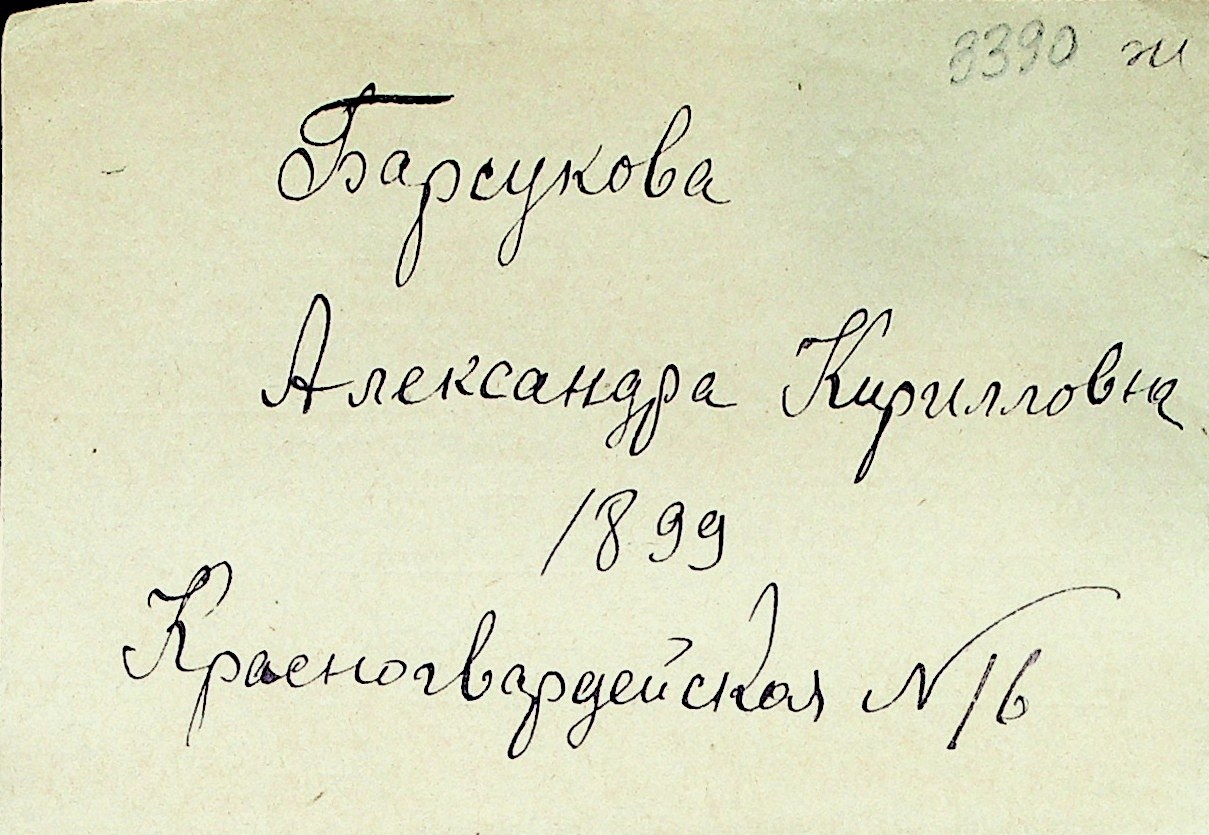 8390 ж
Барсукова
Александра Кирилловна
1899
Красногвардейская N 16